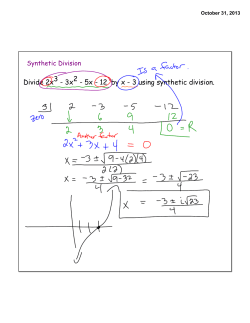 October 31, 2013
Synthetic Division
Is a factor.
Divide 2x³ - 3x² - 5x - 12 by x - 3 using synthetic division.
3| 2 -3 -5 -12
zero 6 9 12
2 3 4 0 = R
Another factor
2x² + 3x + 4 = 0
x = -3 ± √9-4(2)(4)
2(2)
x = -3 ± √9-32 = -3 ± √-23
4 4
x = -3 ± i√23
4